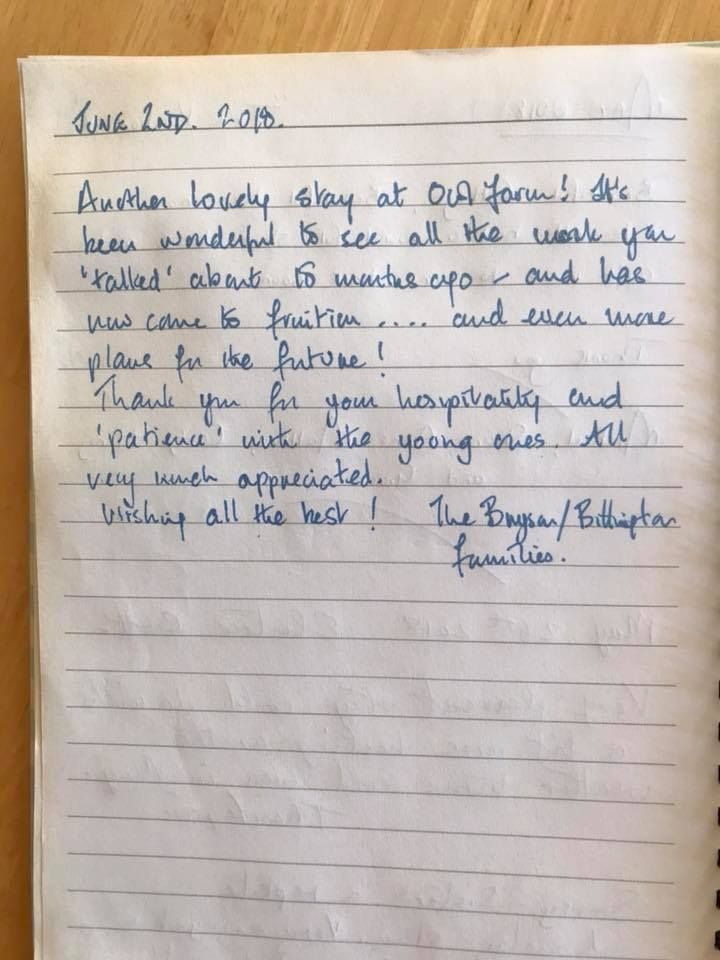 JUNE 2ND. 2018.
Another lovely stay at Old Farm! It's
been wonderful to see all the work you
'talked' about 15 months ago - and has
now come to fruition .... and even more
plans for the future!
Thank you for your hospitality and
'patience' with the young ones. All
very much appreciated.
Wishing all the best! The Bryson/
families.